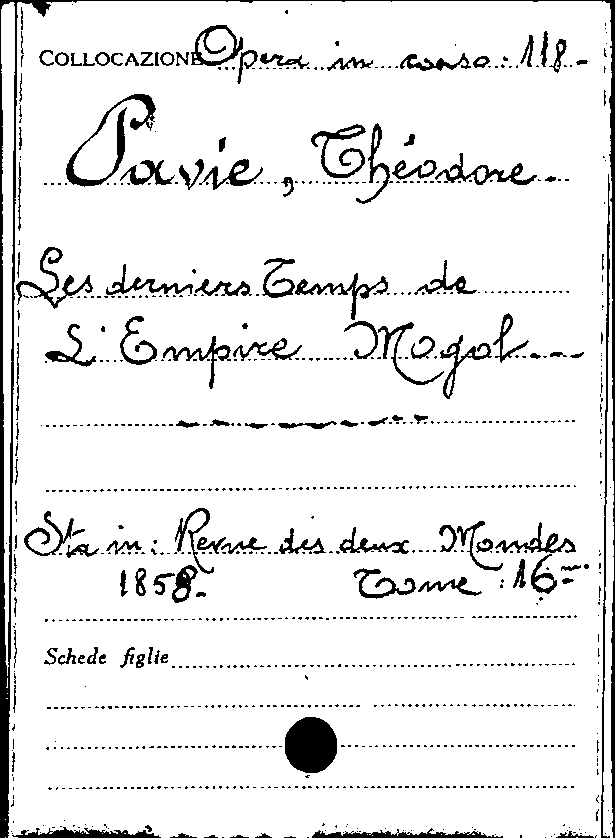 COLLOCAZIONE Opera in corso: 118-
Pavie, Théodore.
Les derniers Temps de
L'Empire Mogol.--
Sta in: Revue des deux Mondes
1858. Tome: 16-
Schede figlie